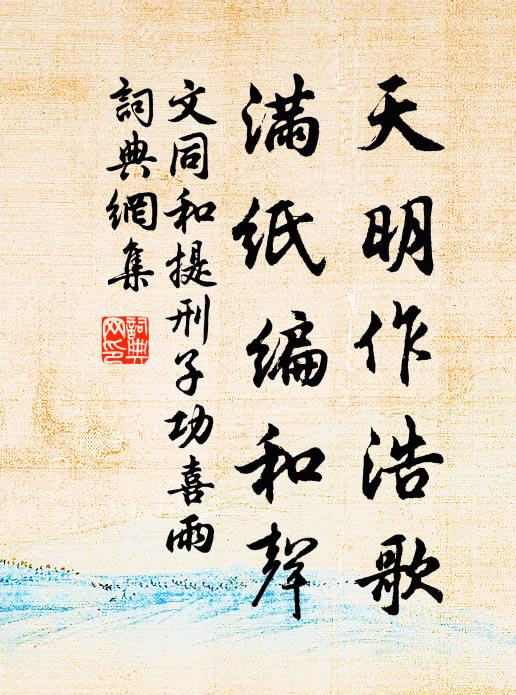 天明作浩歌
满纸编和聲
文同和提刑子功喜雨
詞典網集
詞典网印